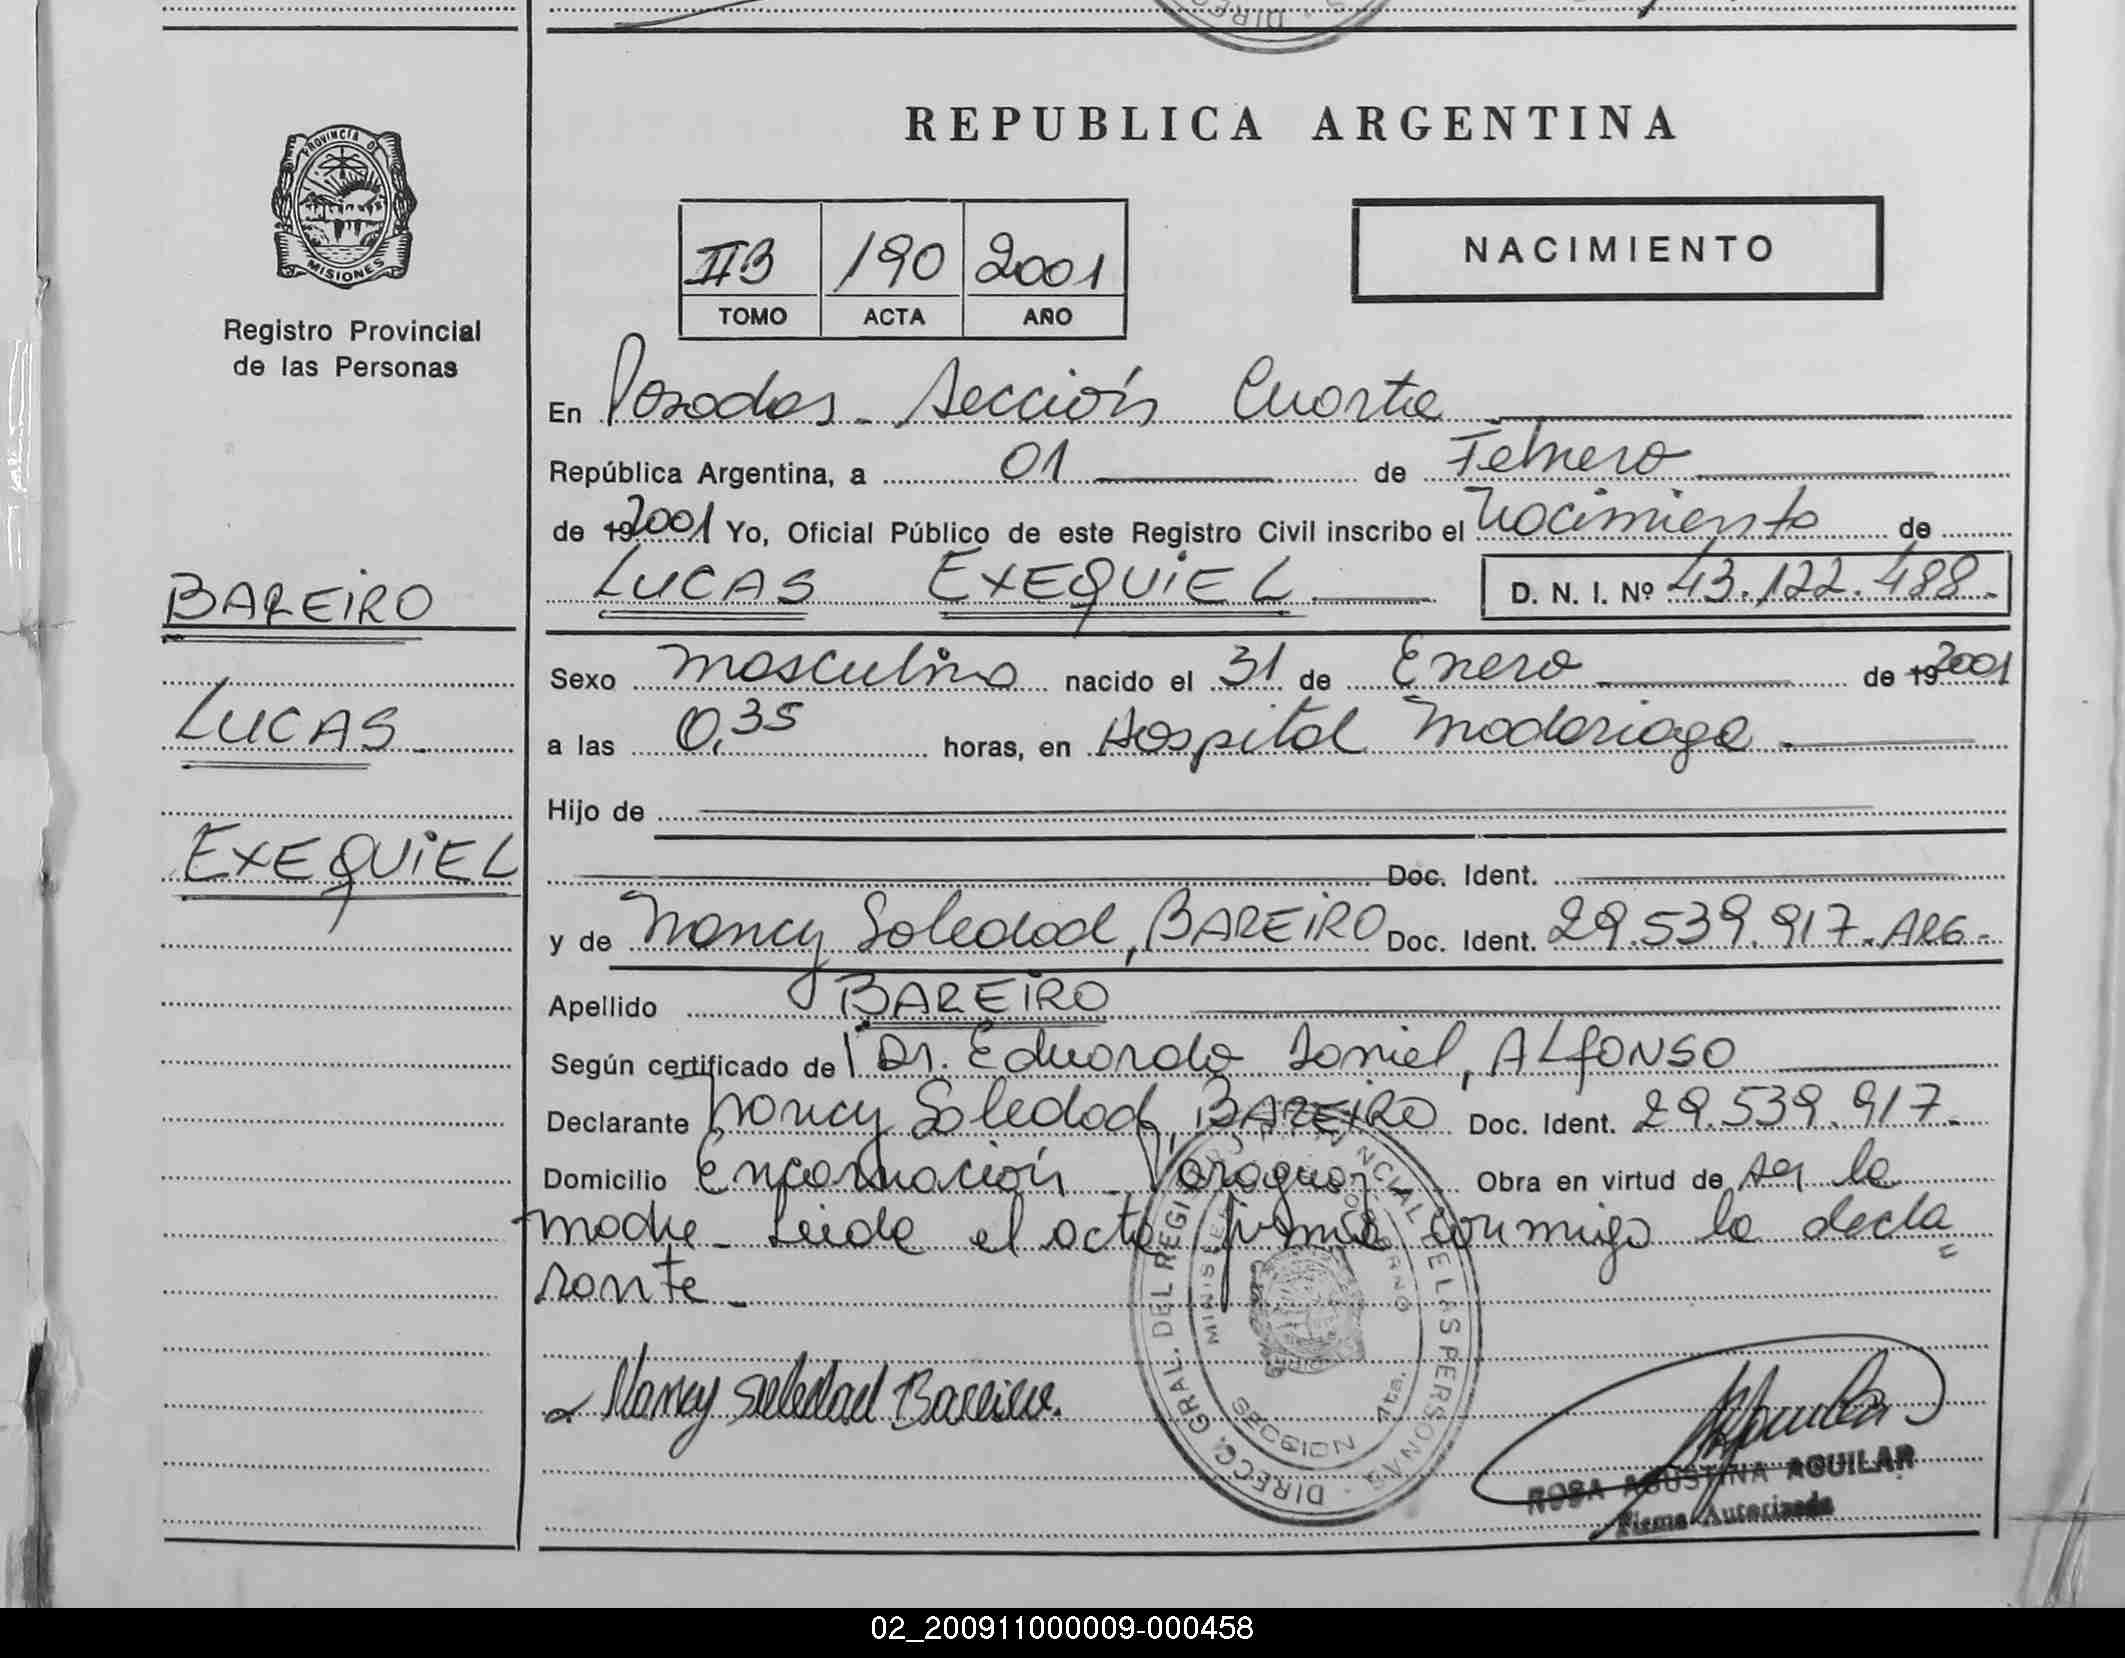 REPUBLICA ARGENTINA
PROVINCIA D
MISIONES
Registro Provincial
de las Personas
II B 190 2001
TOMO ACTA AÑO
NACIMIENTO
En Posadas - Sección Cuarta
República Argentina, a 01 de Febrero
de 19 2001 Yo, Oficial Público de este Registro Civil inscribo el Nacimiento de
LUCAS EXEQUIEL D. N. I. Nº 43.122.488.-
BAREIRO
LUCAS
EXEQUIEL
Sexo masculino nacido el 31 de Enero de 19 2001
a las 0,35 horas, en Hospital Madariaga.
Hijo de
Doc. Ident.
y de Nancy Soledad, BAREIRO Doc. Ident. 29.539.917.-ARG.-
Apellido BAREIRO
Según certificado de Dr. Eduardo Daniel, ALFONSO
Declarante Nancy Soledad, BAREIRO Doc. Ident. 29.539.917.-
Domicilio Encarnación - Paraguay - Obra en virtud de ser la
madre - Leida el acta firma conmigo la decla
rante -
Nancy Soledad Bareiro.
DIRECC. GRAL. DEL REGISTRO PROVINCIAL DE LAS PERSONAS
MINISTERIO GOBIERNO
SECCION 4ta.
ROSA AGUSTINA AGUILAR
Firma Autorizada
02_200911000009-000458